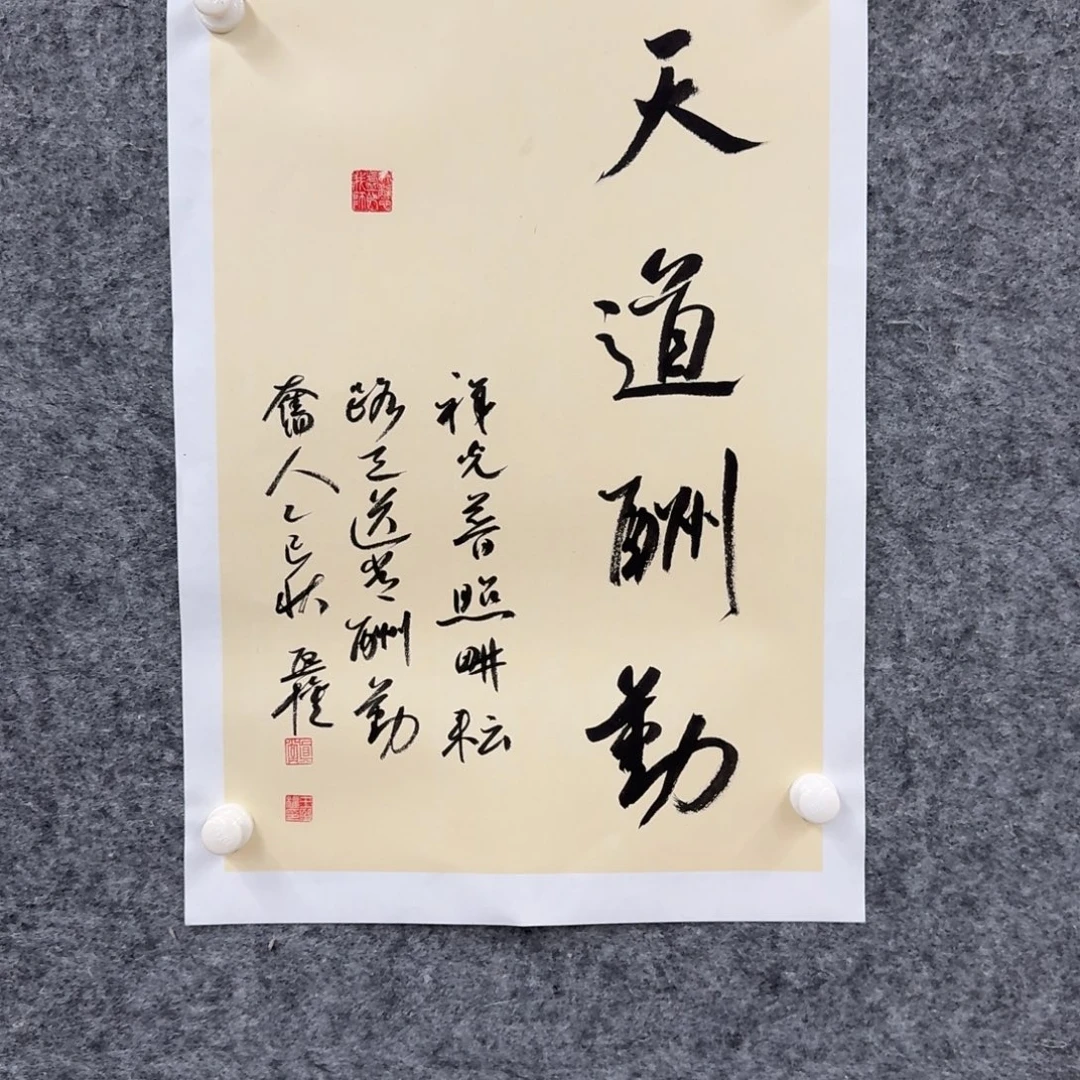 天道酬勤
祥光普照畊耘
路天道常酬勤
奮人乙巳秋